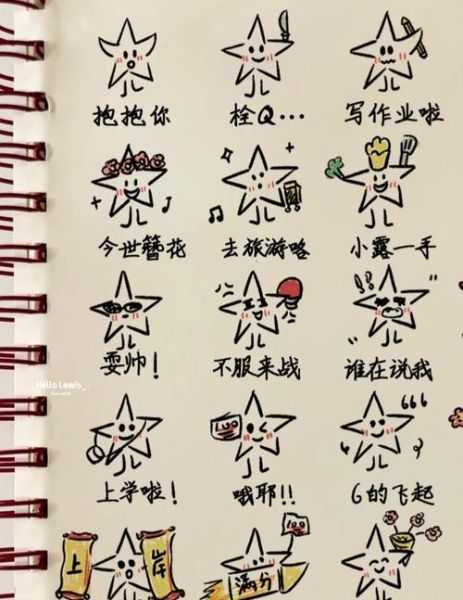 抱抱你
栓Q...
写作业啦
今世簪花
去旅游咯
小露一手
耍帅!
不服来战
谁在说我
Hello Lewis_
上学啦!
哦耶!!
666
6的飞起
上岸
100
满分